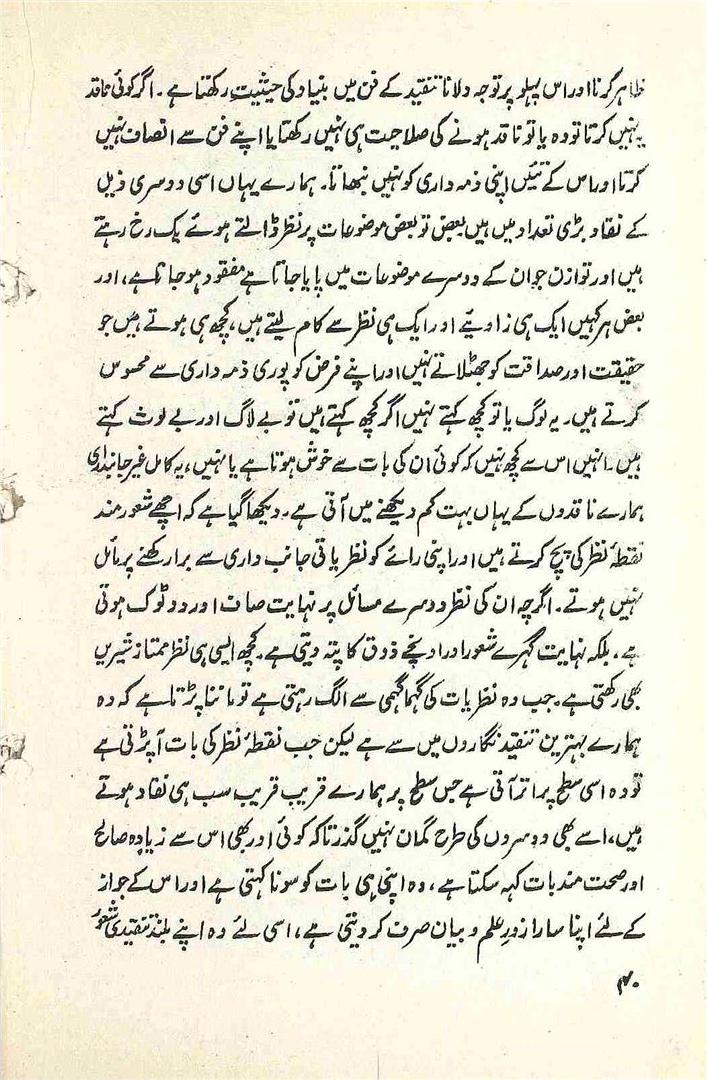 ظاہر کرنا اور اس پہلو پر توجہ دلانا تنقید کے فن میں بنیاد کی حیثیت رکھتا ہے ۔ اگر کوئی ناقد
یہ نہیں کرتا تو وہ یا تو ناقد ہونے کی صلاحیت ہی نہیں رکھتا یا اپنے فن سے انصاف نہیں
کرتا اور اس کے تئیں اپنی ذمہ داری کو نہیں نبھاتا۔ ہمارے یہاں اسی دوسری ذیل
کے نقاد بڑی تعداد میں ہیں بعض تو بعض موضوعات پر نظر ڈالتے ہوئے یک رخ رہتے
ہیں اور توازن جو ان کے دوسرے موضوعات میں پایا جاتا ہے مفقود ہو جاتا ہے، اور
بعض ہر کہیں ایک ہی زاویئے اور ایک ہی نظر سے کام لیتے ہیں، کچھ ہی ہوتے ہیں جو
حقیقت اور صداقت کو جھٹلاتے نہیں اور اپنے فرض کو پوری ذمہ داری سے محسوس
کرتے ہیں۔ یہ لوگ یا تو کچھ کہتے نہیں اگر کچھ کہتے ہیں تو بے لاگ اور بے لوث کہتے
ہیں۔ انہیں اس سے کچھ نہیں کہ کوئی ان کی بات سے خوش ہوتا ہے یا نہیں، یہ کامل غیر جانبداری
ہمارے ناقدوں کے یہاں بہت کم دیکھنے میں آتی ہے۔ دیکھا گیا ہے کہ اچھے شعور مند
نقطۂ نظر کی پچ کرتے ہیں اور اپنی رائے کو نظریاتی جانب داری سے برا رکھنے پر مائل
نہیں ہوتے ۔ اگرچہ ان کی نظر دوسرے مسائل پر نہایت صاف اور دو ٹوک ہوتی
ہے ، بلکہ نہایت گہرے شعور اور اونچے ذوق کا پتہ دیتی ہے ۔ کچھ ایسی ہی نظر ممتاز شیریں
بھی رکھتی ہے ۔ جب وہ نظریات کی گہما گہمی سے الگ رہتی ہے تو ماننا پڑتا ہے کہ وہ
ہمارے بہترین تنقید نگاروں میں سے ہے لیکن جب نقطۂ نظر کی بات آپڑتی ہے
تو وہ اسی سطح پر اتر آتی ہے جس سطح پر ہمارے قریب قریب سب ہی نقاد ہوتے
ہیں، اسے بھی دوسروں کی طرح گمان نہیں گذرتا کہ کوئی اور بھی اس سے زیادہ صالح
اور صحت مند بات کہہ سکتا ہے ، وہ اپنی ہی بات کو سونا کہتی ہے اور اس کے جواز
کے لئے اپنا سارا زور علم و بیان صرف کر دیتی ہے ، اسی لئے وہ اپنے بلند تنقیدی شعور
۴۰